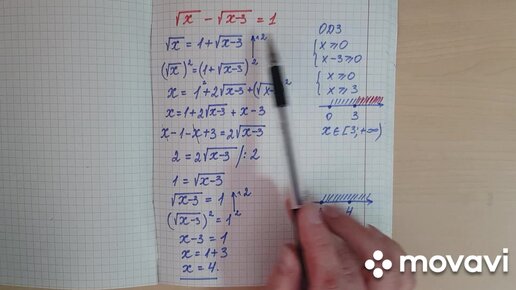 √x − √x−3 = 1
√x = 1 + √x−3 |↑2
(√x)² = (1 + √x−3)²
x = 1² + 2√x−3 + (√x−3)²
x = 1 + 2√x−3 + x − 3
x − 1 − x + 3 = 2√x−3
2 = 2√x−3 /: 2
1 = √x−3
√x−3 = 1 |↑2
(√x−3)² = 1²
x − 3 = 1
x = 1 + 3
x = 4.
ОДЗ
{ x ≥ 0
x − 3 ≥ 0
{ x ≥ 0
x ≥ 3
0 3
x ∈ [3; +∞)
4
movavi